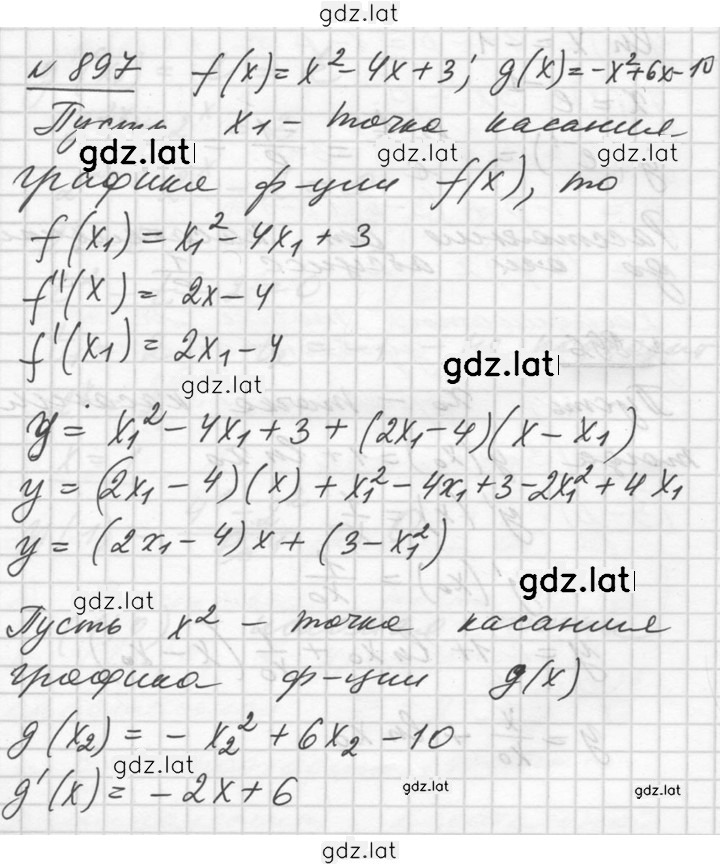 gdz.lat
№ 897 f(x) = x² - 4x + 3; g(x) = -x² + 6x - 10
Пусть x₁ - точка касания
gdz.lat gdz.lat gdz.lat
графика ф-ции f(x), то
f(x₁) = x₁² - 4x₁ + 3
f''(x) = 2x - 4
f'(x₁) = 2x₁ - 4
gdz.lat
gdz.lat
y = x₁² - 4x₁ + 3 + (2x₁ - 4)(x - x₁)
y = (2x₁ - 4)(x) + x₁² - 4x₁ + 3 - 2x₁² + 4x₁
y = (2x₁ - 4)x + (3 - x₁²)
gdz.lat
gdz.lat
Пусть x² - точка касания
графика ф-ции g(x)
g(x₂) = - x₂² + 6x₂ - 10
gdz.lat
g'(x) = - 2x + 6
gdz.lat gdz.lat
gdz.lat